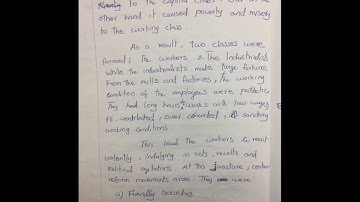 to the capitalist class, but on the
other hand it caused poverty and misery
to the working class.
As a result, two classes were
formed; The workers & The Industrialists
while the industrialists made large fortune
from the mills and factories, the working
condition of the employees were pathetic
They had long hours works with low wages
ill-ventilated, over crowded, ill sanitary
working conditions
This lead the workers to react
violently, indulging in riots, revolts and
political agitations. At this juncture, certain
reform movements arose. They were
a) Friendly Societies